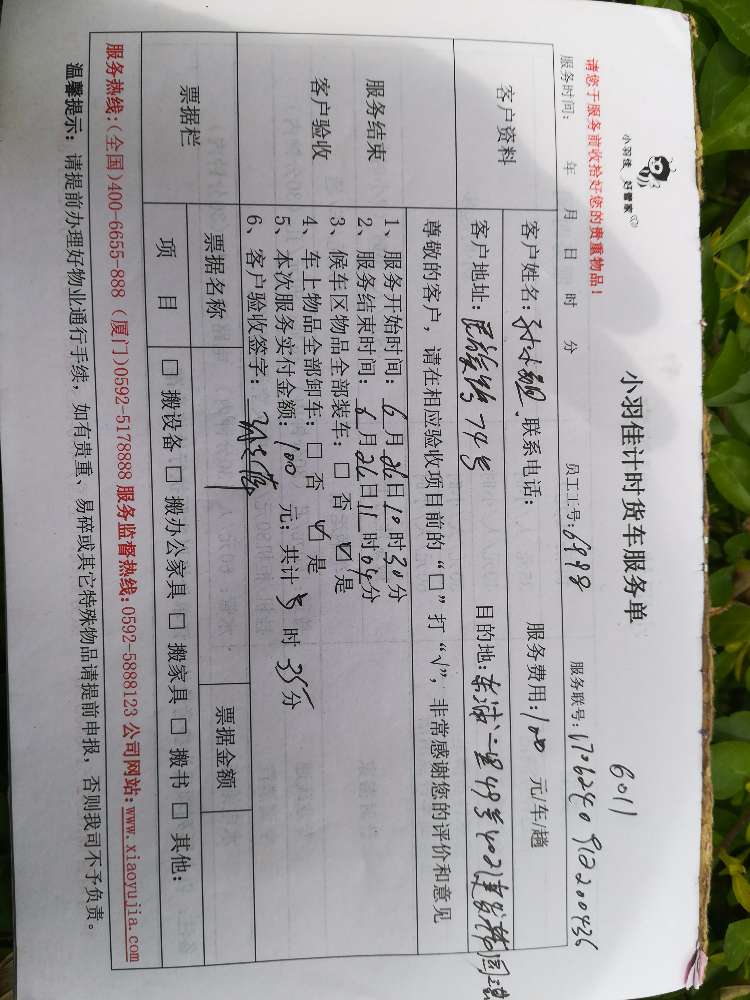 小羽佳 好管家
小羽佳计时货车服务单
6011
请您于服务前收拾好您的贵重物品！
服务时间： 年 月 日 时 分 员工工号：6998 服务联号：1706240912200436
客户资料
客户姓名： 联系电话： 服务费用：100 元/车/趟
客户地址：民族路74号 目的地：东浦一里49号402
尊敬的客户，请在相应验收项目前的“□”打“√”，非常感谢您的评价和意见
服务结束
客户验收
1、服务开始时间：6月26日10时30分
2、服务结束时间：6月26日11时04分
3、候车区物品全部装车：□ 否 ☑ 是
4、车上物品全部卸车：□ 否 ☑ 是
5、本次服务实付金额：100 元；共计 时 35分
6、客户验收签字：
票据栏
票据名称 票据金额
项 目 □ 搬设备 □ 搬办公家具 □ 搬家具 □ 搬书 □ 其他：
服务热线：(全国)400-6655-888 (厦门)0592-5178888 服务监督热线：0592-5888123 公司网站：www.xiaoyujia.com
温馨提示：请提前办理好物业通行手续，如有贵重、易碎或其它特殊物品请提前申报，否则我司不予负责。